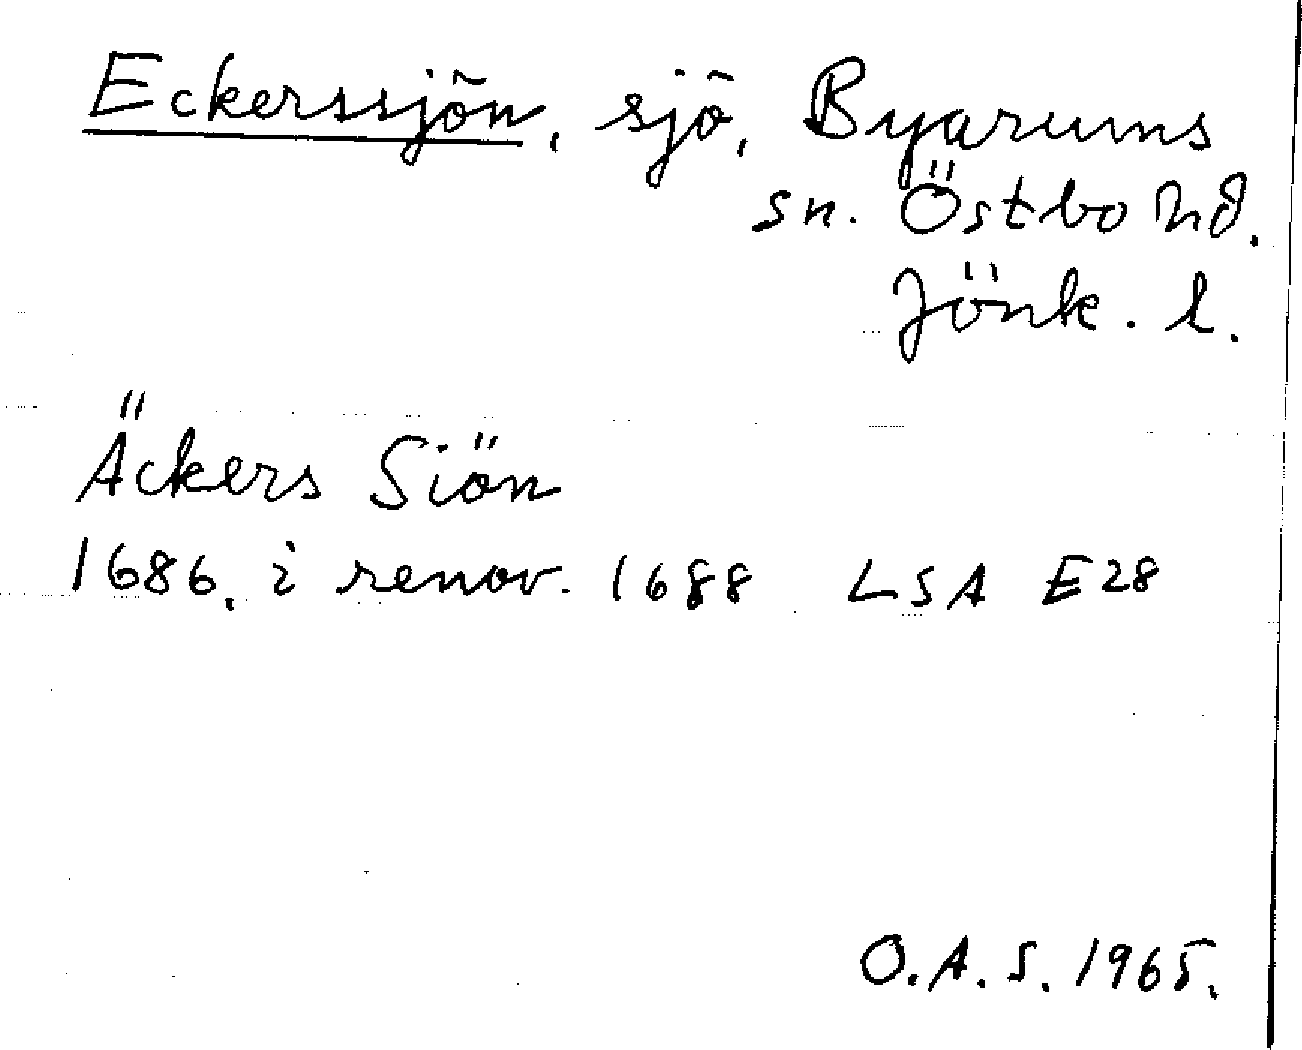 Eckerssjön, sjö, Byarums
sn. Östbo hd.
Jönk. l.
Äckers Siön
1686, i renov. 1688 LSA E28
O.A.S. 1965.